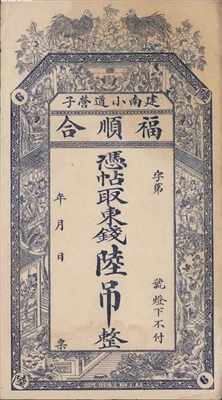 建南小道營子
福順合
字第
號燈下不付
憑帖取東錢陸吊整
年月日
票
6
6
6